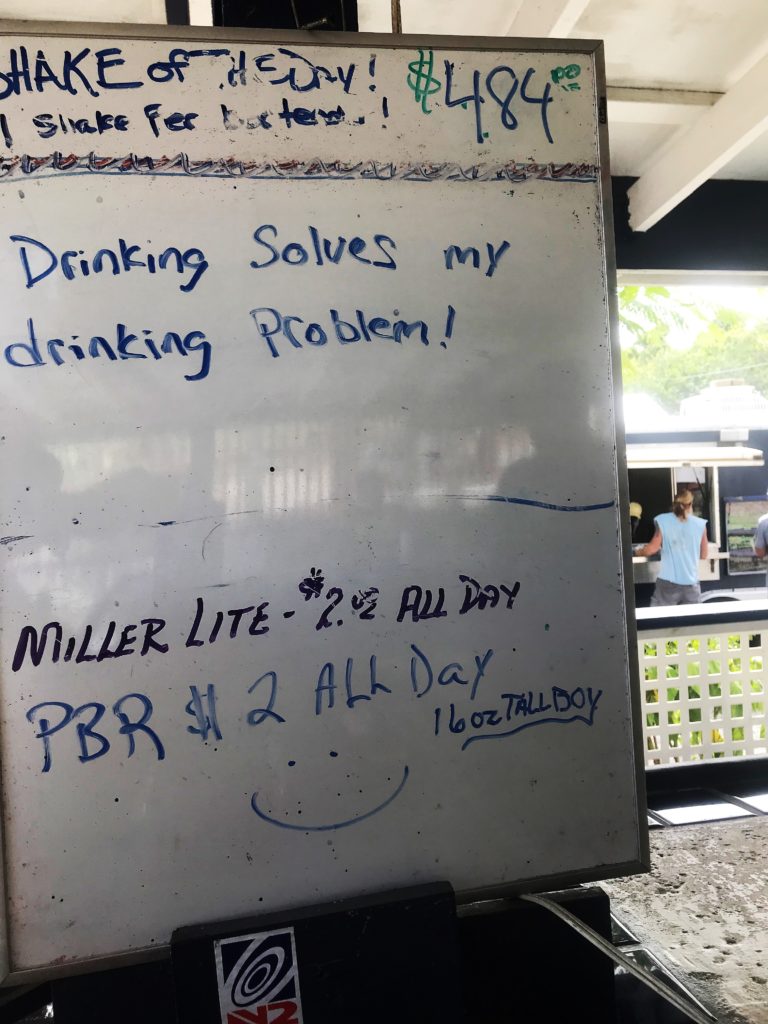 SHAKE of THE DAY! $484.00
1 shake Per bartender!
Drinking Solves my
drinking Problem!
MILLER LITE - $2.02 ALL DAY
PBR $2 ALL Day
16oz TALLBOY